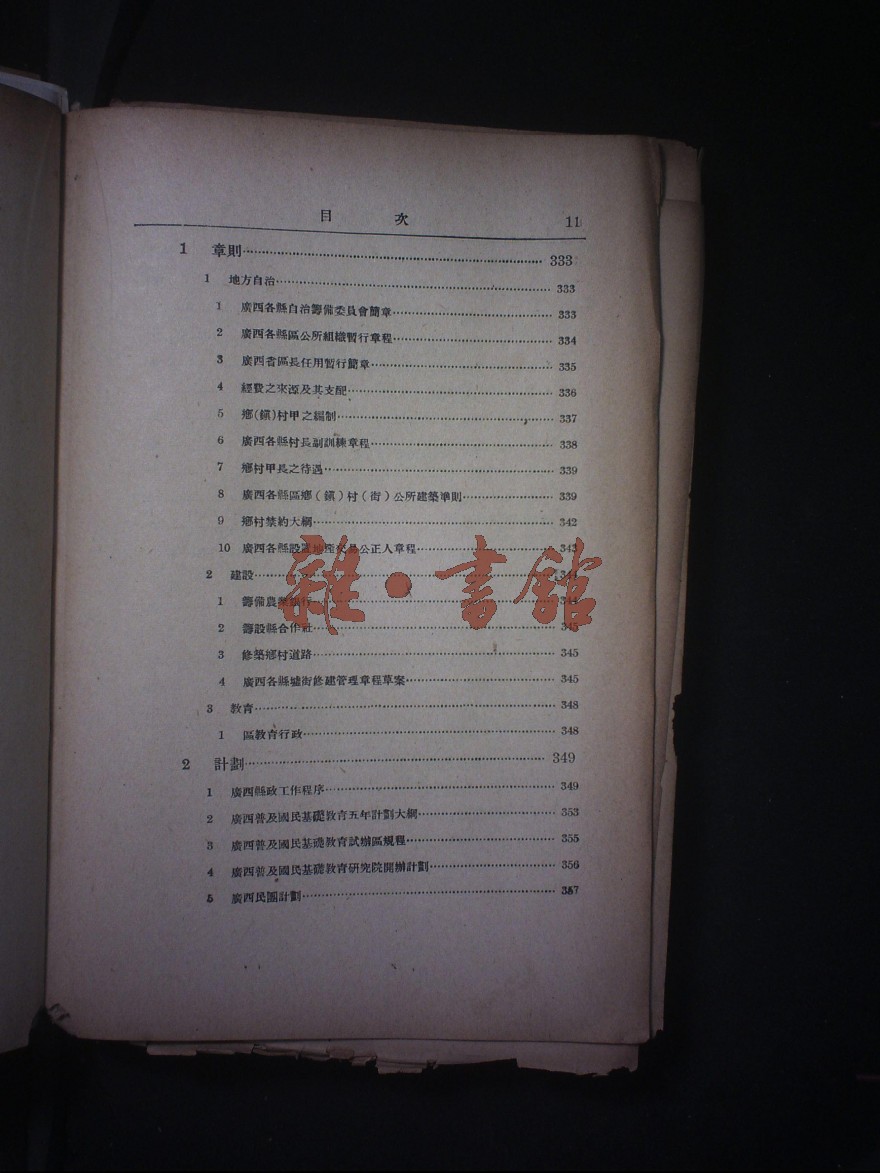 目 次 11
1 章則 333
1 地方自治 333
1 廣西各縣自治籌備委員會簡章 333
2 廣西各縣區公所組織暫行章程 334
3 廣西省區長任用暫行簡章 335
4 經費之來源及其支配 336
5 鄉(鎮)村甲之編制 337
6 廣西各縣村長副訓練章程 338
7 鄉村甲長之待遇 339
8 廣西各縣區鄉(鎮)村(街)公所建築準則 339
9 鄉村禁約大綱 342
10 廣西各縣設置地產交易公正人章程 343
2 建設 344
1 籌備農業銀行 344
2 籌設縣合作社 345
3 修築鄉村道路 345
4 廣西各縣墟街修建管理章程草案 345
3 教育 348
1 區教育行政 348
2 計劃 349
1 廣西縣政工作程序 349
2 廣西普及國民基礎教育五年計劃大綱 353
3 廣西普及國民基礎教育試辦區規程 355
4 廣西普及國民基礎教育研究院開辦計劃 356
5 廣西民團計劃 357
雜·書館